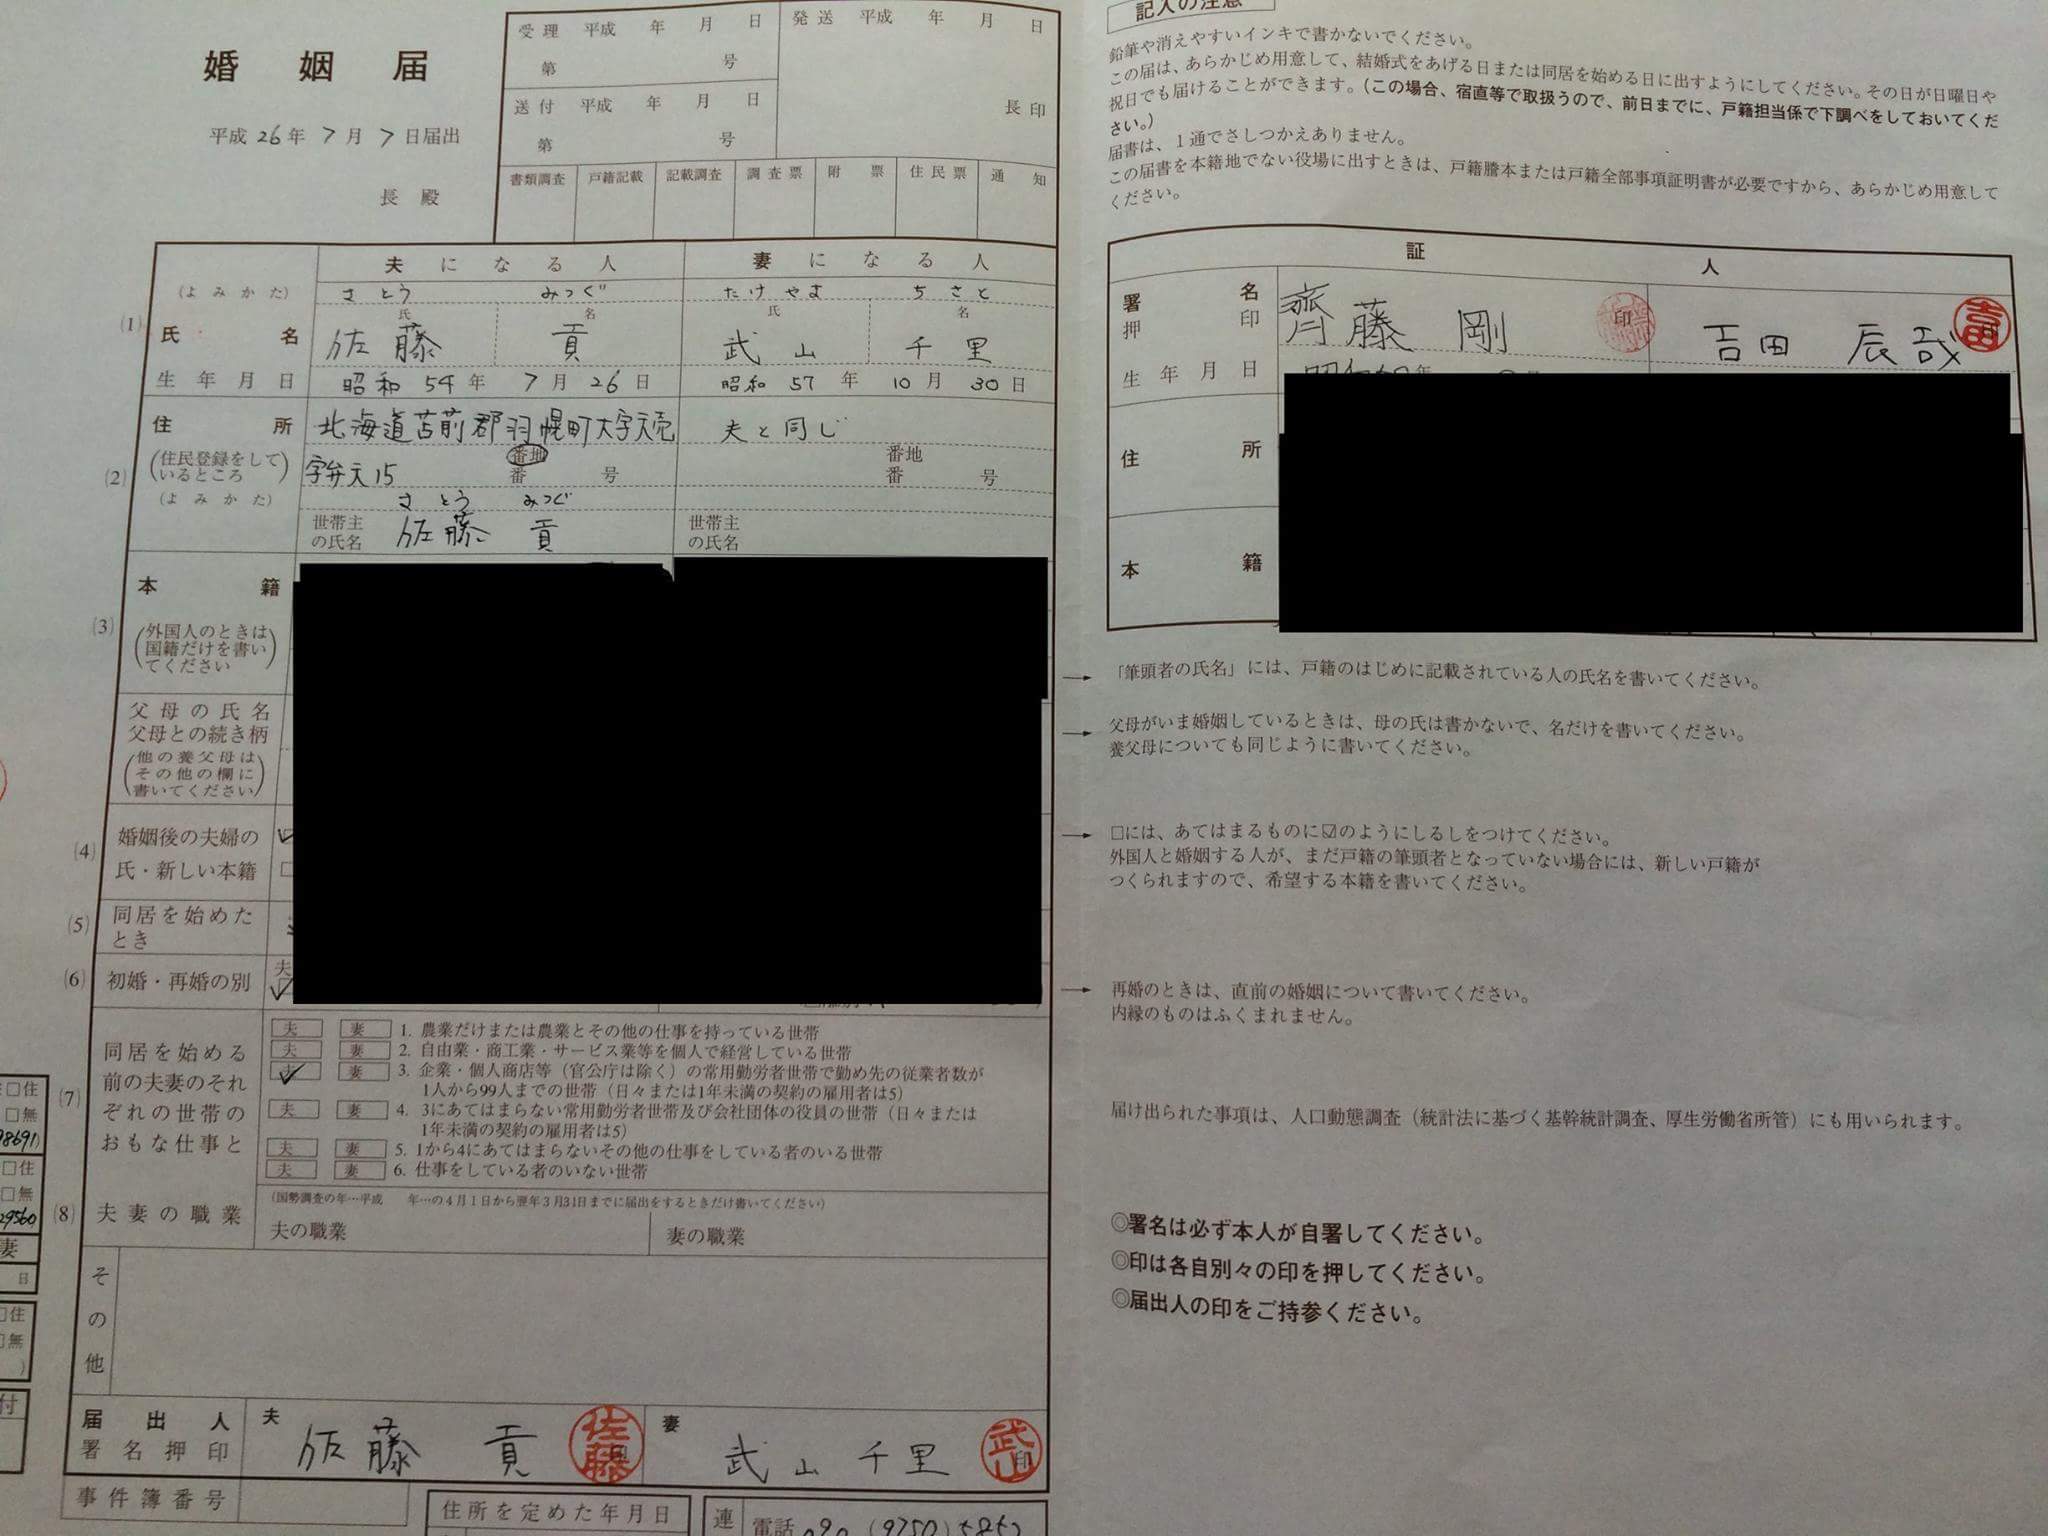 婚姻届
平成26年7月7日届出
長殿
受理 平成 年 月 日
第 号
発送 平成 年 月 日
送付 平成 年 月 日
第 号
長印
書類調査 戸籍記載 記載調査 調査票 附票 住民票 通知
夫になる人 妻になる人
(よみかた) さとう みつぐ たけやま ちさと
(1) 氏名 氏 名 氏 名
佐藤 貢 武山 千里
生年月日 昭和54年7月26日 昭和57年10月30日
(2) 住所 北海道苫前郡羽幌町大字天売 夫と同じ
(住民登録をしているところ) 字弁天15 番地 番 号 番地 番 号
(よみかた) さとう みつぐ
世帯主の氏名 佐藤 貢 世帯主の氏名
(3) 本籍
(外国人のときは
国籍だけを書い
てください)
父母の氏名
父母との続き柄
(他の養父母は
その他の欄に
書いてください)
(4) 婚姻後の夫婦の
氏・新しい本籍
(5) 同居を始めた
とき
(6) 初婚・再婚の別 夫
(7) 同居を始める
前の夫妻のそれ
ぞれの世帯の
おもな仕事と
夫 妻 1. 農業だけまたは農業とその他の仕事を持っている世帯
夫 妻 2. 自由業・商工業・サービス業等を個人で経営している世帯
夫 妻 3. 企業・個人商店等(官公庁は除く)の常用勤労者世帯で勤め先の従業者数が
1人から99人までの世帯(日々または1年未満の契約の雇用者は5)
夫 妻 4. 3にあてはまらない常用勤労者世帯及び会社団体の役員の世帯(日々または
1年未満の契約の雇用者は5)
夫 妻 5. 1から4にあてはまらないその他の仕事をしている者のいる世帯
夫 妻 6. 仕事をしている者のいない世帯
(8) 夫妻の職業
(国勢調査の年…平成 年…の4月1日から翌年3月31日までに届出をするときだけ書いてください)
夫の職業 妻の職業
その他
届出人
署名押印
夫 佐藤 貢 佐藤 印
妻 武山 千里 武山 印
事件簿番号
住所を定めた年月日
連
電話 090(9750)5852
記入の注意
鉛筆や消えやすいインキで書かないでください。
この届は、あらかじめ用意して、結婚式をあげる日または同居を始める日に出すようにしてください。その日が日曜日や
祝日でも届けることができます。(この場合、宿直等で取扱うので、前日までに、戸籍担当係で下調べをしておいてくだ
さい。)
届書は、1通でさしつかえありません。
この届書を本籍地でない役場に出すときは、戸籍謄本または戸籍全部事項証明書が必要ですから、あらかじめ用意して
ください。
証人
署名
押印
齊藤 剛 印 吉田 辰哉 吉田
生年月日
住所
本籍
「筆頭者の氏名」には、戸籍のはじめに記載されている人の氏名を書いてください。
父母がいま婚姻しているときは、母の氏は書かないで、名だけを書いてください。
養父母についても同じように書いてください。
□には、あてはまるものに☑のようにしるしをつけてください。
外国人と婚姻する人が、まだ戸籍の筆頭者となっていない場合には、新しい戸籍が
つくられますので、希望する本籍を書いてください。
再婚のときは、直前の婚姻について書いてください。
内縁のものはふくまれません。
届け出られた事項は、人口動態調査(統計法に基づく基幹統計調査、厚生労働省所管)にも用いられます。
◎署名は必ず本人が自署してください。
◎印は各自別々の印を押してください。
◎届出人の印をご持参ください。
□住
□無
98691)
□住
□無
29560
妻
日
□住
□無
)
付